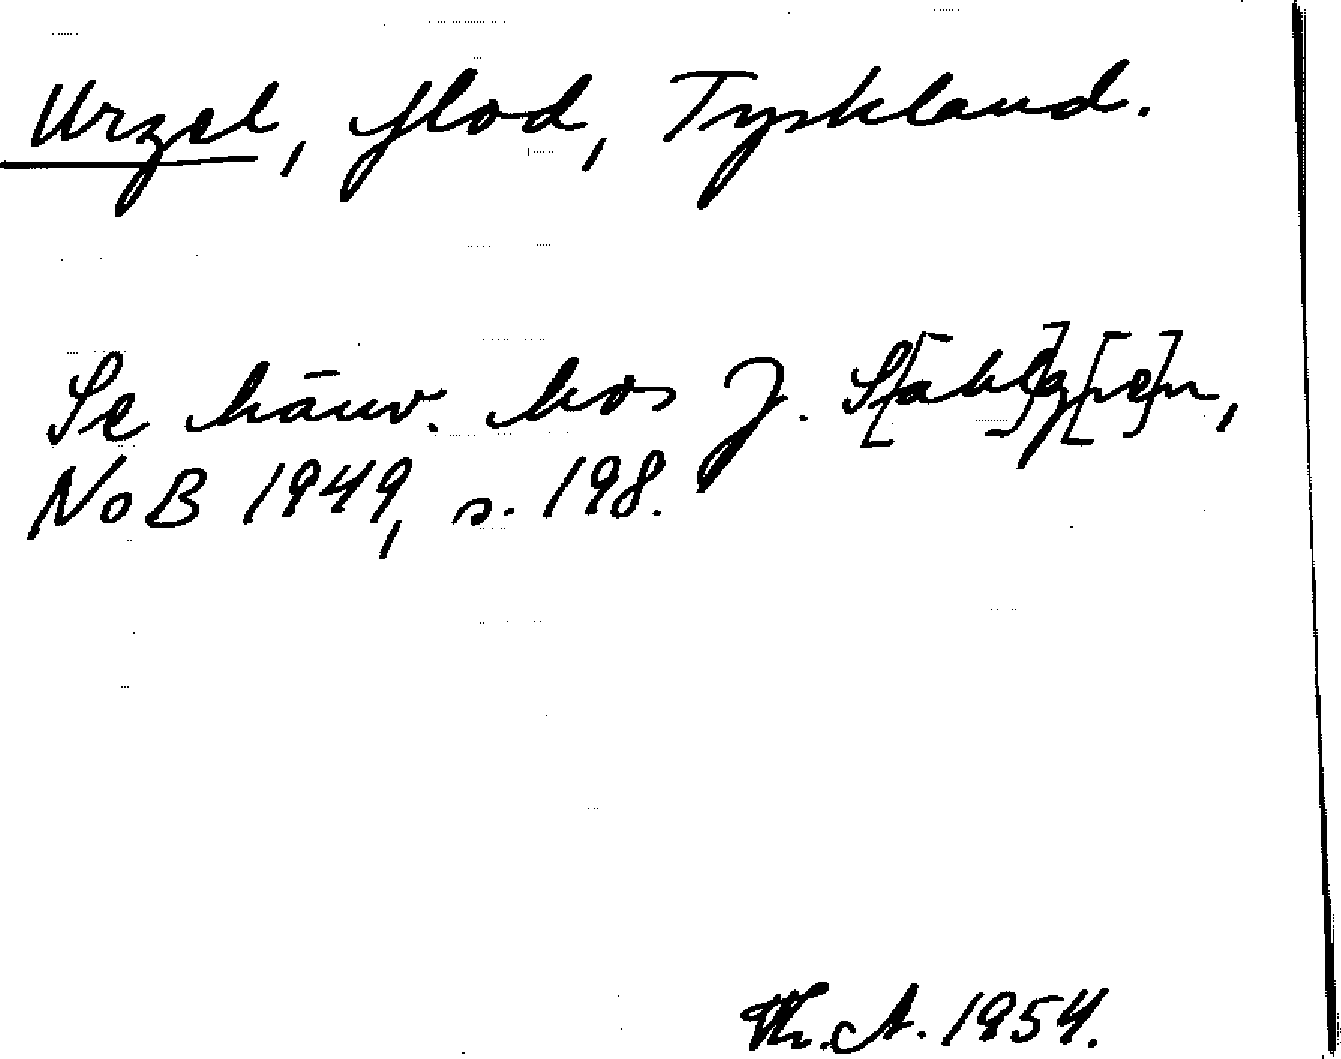 Urzel, flod, Tyskland.
Se hänv. hos J. S[åhl]g[re]n,
NoB 1949, s. 198.
Th. A. 1954.